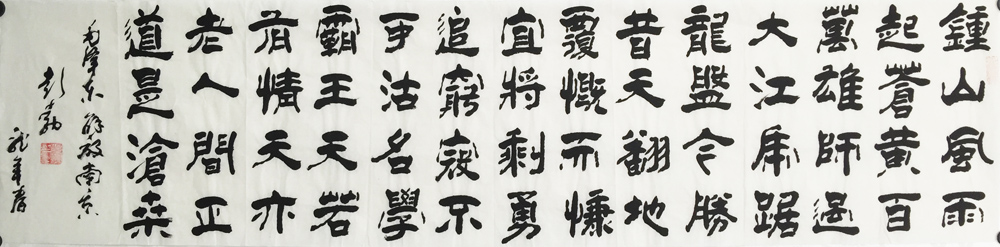 鍾山風雨
起蒼黃百
萬雄師過
大江虎踞
龍盤今勝
昔天翻地
覆慨而慷
宜將剩勇
追窮寇不
可沽名學
霸王天若
有情天亦
老人間正
道是滄桑
毛澤东解放南京
彭勃
龙年春